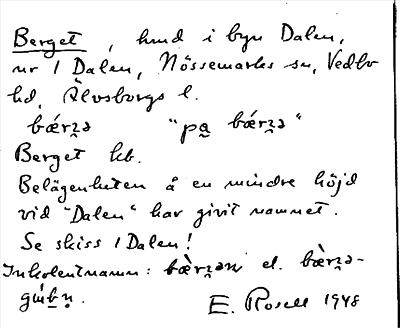 Berget, hmd i byn Dalen,
nr 1 Dalen, Nössemarks sn, Vedbo
hd, Älvsborgs l.
bǽrʒ̱ə "pa̱ bǽrʒ̱ə"
Berget hb.
Belägenheten å en mindre höjd
vid "Dalen" har givit namnet.
Se skiss 1 Dalen!
Inkolentnamn: bæ̀rʒ̱ən el. bæ̀rʒ̱ə-
E. Rosell 1948